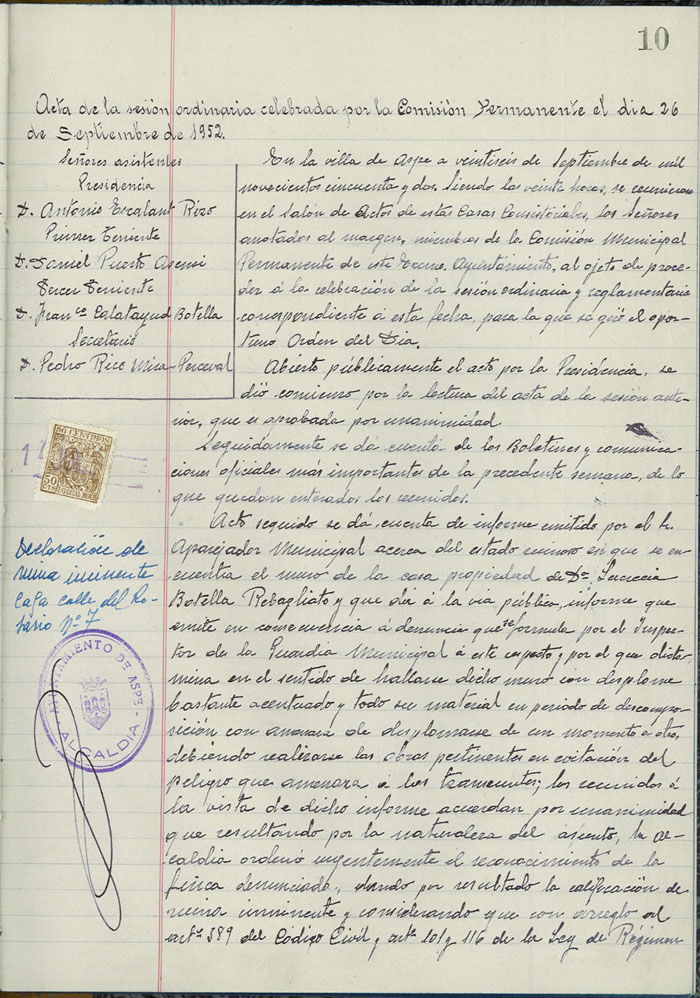 10
Acta de la sesión ordinaria celebrada por la Comisión Permanente el dia 26
de Septiembre de 1952.
Señores asistentes
Presidencia
D. Antonio Escalant Rizo
Primer Teniente
D. Samel Puerto Asensi
Tercer Teniente
D. Franco Calatayud Botella
Secretario
D. Pedro Rico Mira-Perceval
En la villa de Aspe a veintiseis de Septiembre de mil
novecientos cincuenta y dos. Siendo las veinte horas, se reunieron
en el Salón de Actos de estas Casas Consistoriales, los Señores
anotados al margen, miembros de la Comisión Municipal
Permanente de este Excmo. Ayuntamiento, al ojeto de proce-
der á la celebración de la sesión ordinaria y reglamentaria
correspondiente á esta fecha, para la que se giró el opor-
tuno Orden del Dia.
Abierto públicamente el acto por la Presidencia, se
dió comienzo por la lectura del acta de la sesión ante-
rior, que es aprobada por unanimidad.
Seguidamente se dá cuenta de los Boletines y comunica-
ciones oficiales más importantes de la precedente semana, de lo
que quedan enterados los reunidos.
50 CENTIMOS
50
CTS
Declaración de
ruina inminente
casa calle del Ro-
sario Nº 7
AYUNTAMIENTO DE ASPE
ALCALDIA
Acto seguido se dá cuenta de informe emitido por el Sr.
Aparejador Municipal acerca del estado ruinoso en que se en-
cuentra el muro de la casa propiedad de Dª Lucrecia
Botella Rebagliato y que dá á la via pública, informe que
emite en consecuencia á denuncia que se formula por el Inspec-
tor de la Guardia Municipal á este respecto; por el que dicta-
mina en el sentido de hallarse dicho muro con desplome
bastante acentuado y todo su material en periodo de descompo-
sición con amenaza de desplomarse de un momento a otro,
debiendo realizarse las obras pertinentes en evitación del
peligro que amenaza á los transeuntes; los reunidos á
la vista de dicho informe acuerdan por unanimidad
que resultando por la naturaleza del asunto, la Al-
caldia ordenó urgentemente el reconocimiento de la
finca denunciada, dando por resultado la calificación de
ruina inminente y considerando que con arreglo al
artº 389 del Código Civil y artº 101 y 116 de la Ley de Régimen